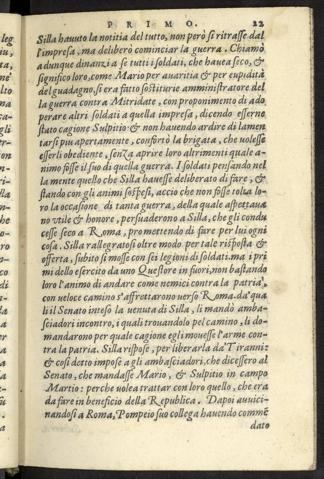 PRIMO. 22
Silla hauuto la notitia del tutto, non però si ritrasse dal
l'impresa, ma deliberò cominciar la guerra. Chiamò
adunque dinanzi a se tutti i soldati, che hauea seco, &
significo loro, come Mario per auaritia & per cupidità
del guadagno, s'era fatto sostituire amministratore del
la guerra contra Mitridate, con proponimento di ado
perare altri soldati a quella impresa, dicendo esserne
stato cagione Sulpitio: & non hauendo ardire di lamen
tarsi piu apertamente, confortò la brigata, che uolesse
esserli obediente, senza aprire loro altrimenti quale a-
nimo fosse il suo di quella guerra. I soldati pensando nel
la mente quello che Silla hauesse deliberato di fare, &
stando con gli animi sospesi, accio che non fosse tolta lo-
ro la occasione di tanta guerra, della quale aspettaua
no utile & honore, persuaderono a Silla, che gli condu
cesse seco a Roma, promettendo di fare per lui ogni
cosa. Silla rallegratosi oltre modo per tale risposta &
offerta, subito si mosse con sei legioni di soldati. ma i pri
mi dello esercito da uno Questore in fuori, non bastando
loro l'animo di andare come nemici contra la patria,
con veloce camino s'affrettarono uerso Roma. da' qua
li il Senato inteso la uenuta di Silla, li mandò amba-
sciadori incontro, i quali trouandolo pel camino, li do-
mandarono per quale cagione egli mouesse l'arme con-
tra la patria. Silla rispose, per liberarla da' Tiranni:
& cosi detto impose a gli ambasciadori, che dicessero al
Senato, che mandasse Mario, & Sulpitio in campo
Martio: perche uolea trattar con loro quello, che era
da fare in beneficio della Republica. Dapoi auuici-
nandosi a Roma, Pompeio suo collega hauendo comme
dato